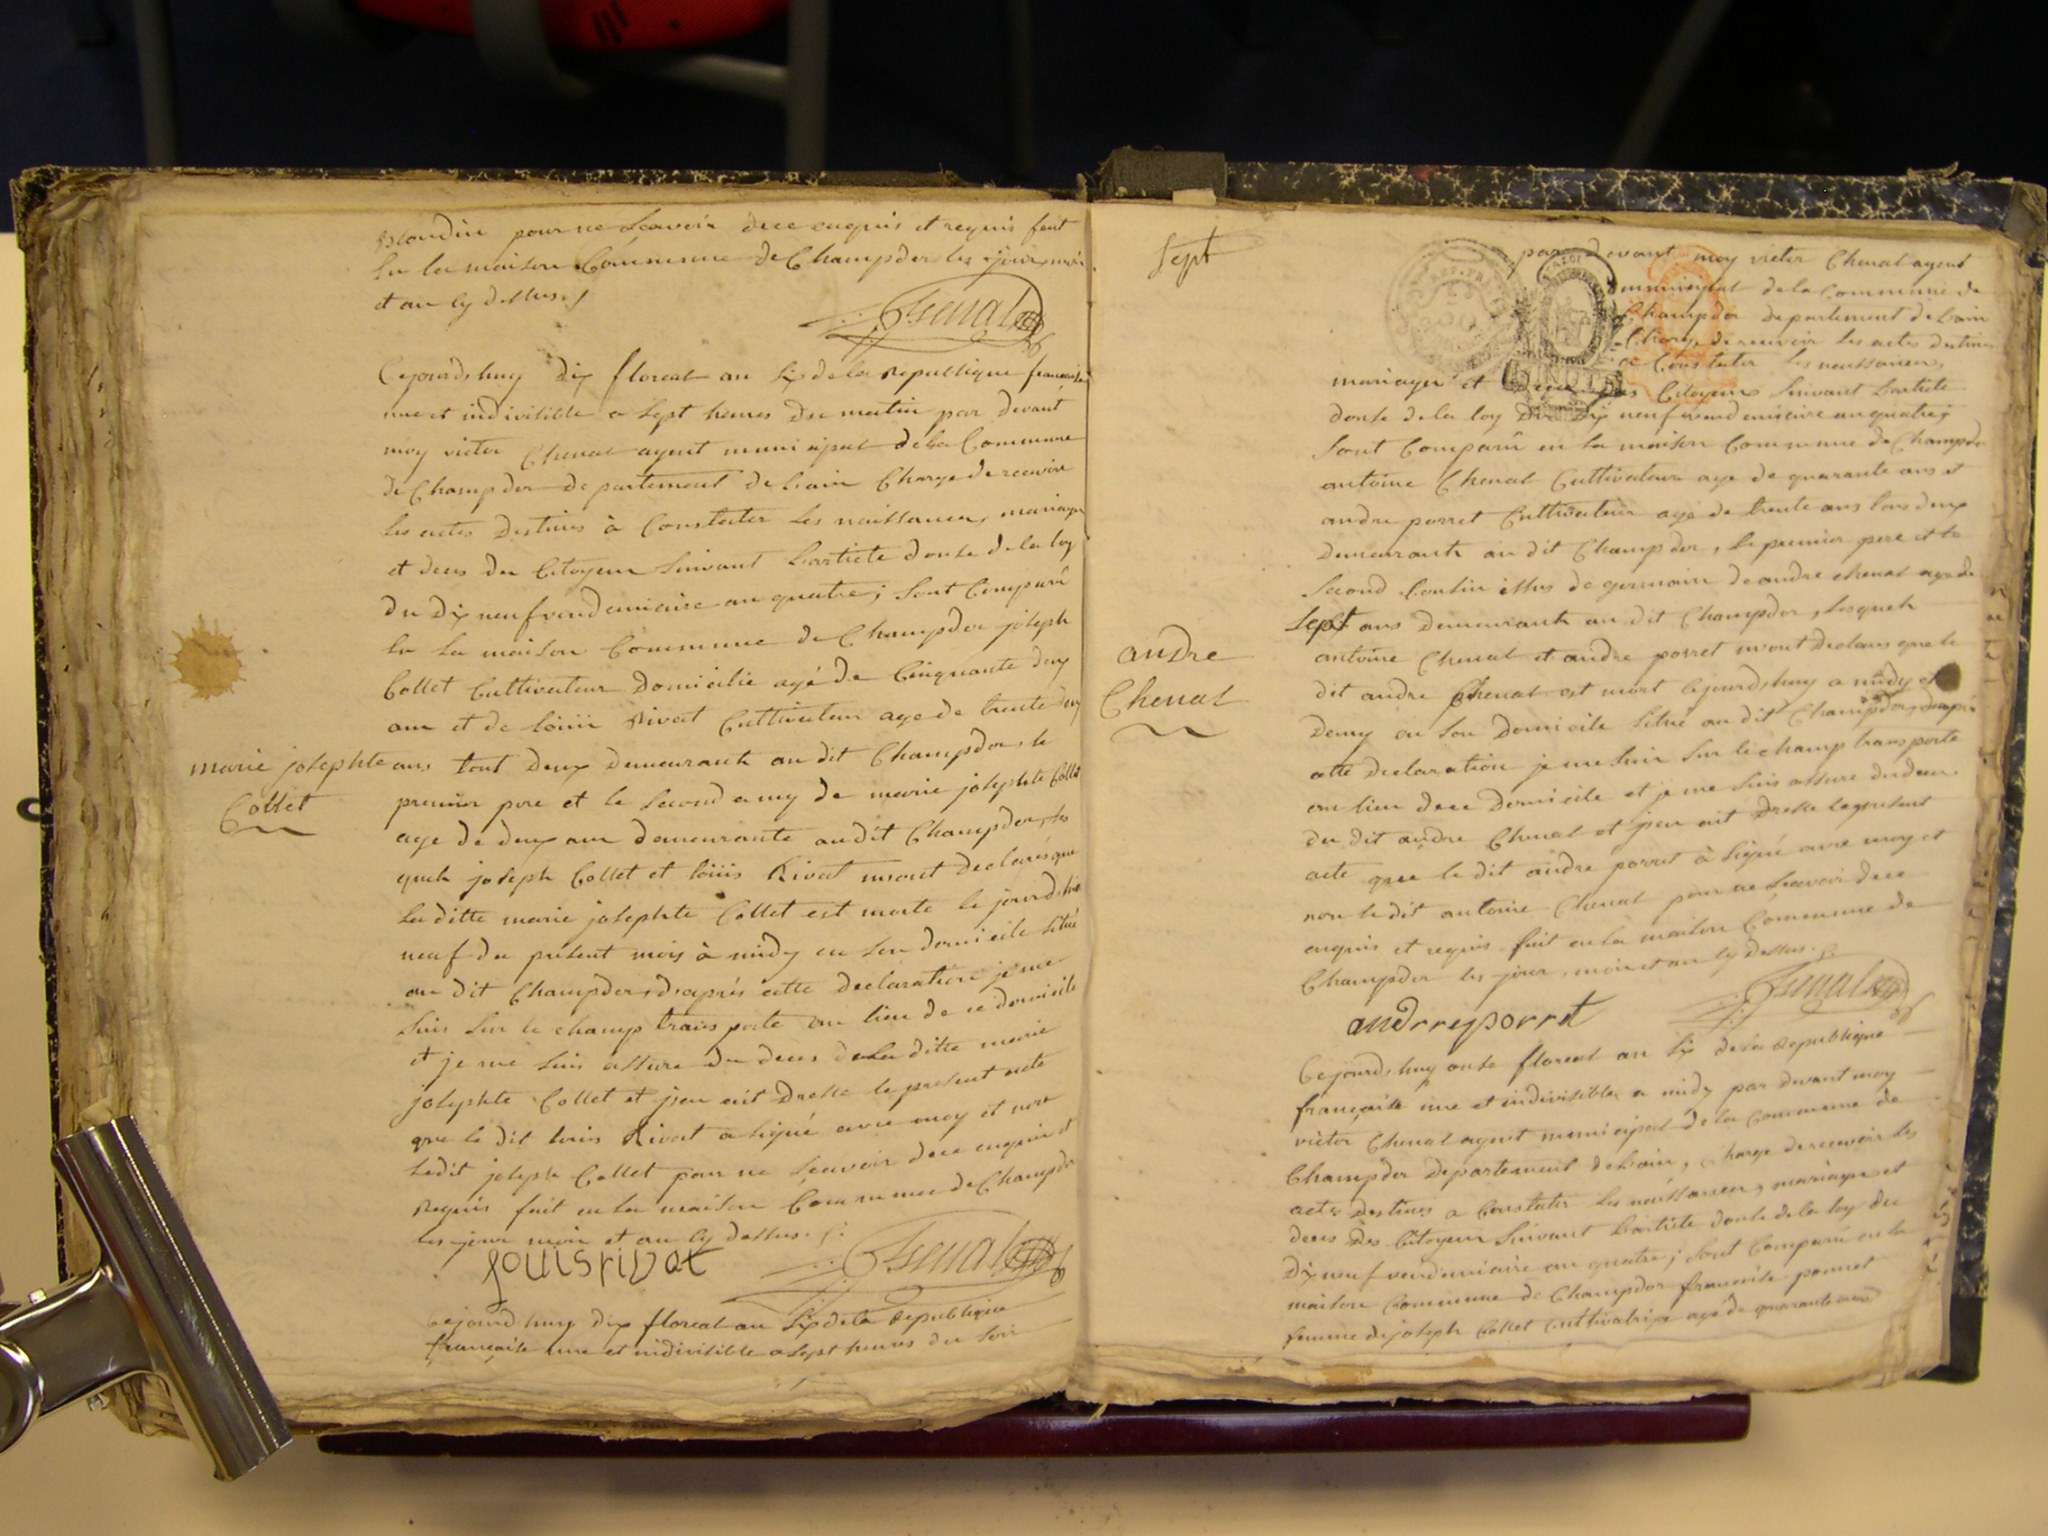 blondin pour ne scavoir dece enquis et requis fait
en la maison Commune de Champdor les jour, mois
et an cy dessus
Chenal
Cejourdshuy dix floreal an six de la republique francaise
une et indivisible a sept heures du matin par devant
moy victor Chenal agent municipal de la Commune
de Champdor departement de Lain Charge de recevoir
les actes destines à Constater les naissances, mariages
et deces des Citoyens suivant Larticle douse de la loy
du dix neuf vendemiaire an quatre; sont Comparu
en la maison Commune de Champdor joseph
Collet Cultivateur domicilié agé de Cinquante deux
ans et de loüis Rivat Cultivateur age de trente deux
marie josephte
Collet
ans tout deux demeurants au dit Champdor, le
premier pere et le second amy de marie josephte Collet
age de deux ans demeurante au dit Champdor, les
quels joseph Collet et loüis Rivat mont declarés que
la ditte marie josephte Collet est morte le jourdshie
neuf du présent mois à midy en son domicile situé
au dit Champdor, daprés cette declaration je me
suis sur le champ transporte au lieu de ce domicile
et je me suis assure du deces de la ditte marie
josephte Collet et jsen ait dresse le present acte
que le dit loüis Rivat a signé avec moy et non
ledit joseph Collet pour ne scavoir dece enquis et
requis fait en la maison Commune de Champdor
les jour mois et an cy dessus
louis rivat
Chenal
Cejourdshuy dix floreal an six de la republique
française une et indivisible a sept heures du soir
Sept
par devant moy victor Chenal agent
municipal de la Commune de
Champdor departement de Lain
Charge de recevoir les actes destines
a Constater les naissances,
mariages et deces des Citoyens suivant Larticle
douse de la loy du dix neuf vendemiaire an quatre;
sont Comparu en la maison Commune de Champdor
antoine Chenal Cultivateur age de quarante ans et
andre porret Cultivateur agé de trente ans tous deux
demeurants au dit Champdor, le premier pere et le
second Cousin issus de germain de andre chenal age de
sept ans demeurants au dit Champdor, lesquels
andre
Chenal
antoine Chenal et andre porret mont declares que le
dit andre Chenal est mort cejourdshuy a midy et
demy en son domicile situé au dit Champdor, daprés
cette declaration je me suis sur le champ transporte
au lieu dece domicile et je me suis assure du deces
du dit andre Chenal et jsen ait dresse le present
acte que le dit andre porret à signé avec moy et
non le dit antoine Chenal pour ne scavoir dece
enquis et requis fait en la maison Commune de
Champdor les jour, mois et an cy dessus
andrreyporret
Chenal
Cejourdshuy onse floreal an six de la republique
française une et indivisible a midy par devant moy
victor Chenal agent municipal de la Commune de
Champdor departement de Lain, charge de recevoir les
actes destines a Constater les naissances, mariages et
deces des Citoyens suivant Larticle douse de la loy du
dix neuf vendemiaire an quatre; sont Comparu en la
maison Commune de Champdor francoise ponnet
femme de joseph Collet Cultivatrice agé de quarante ans